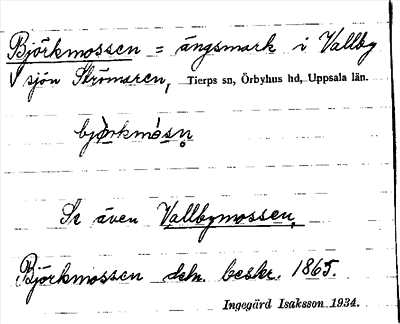 Björkmossen = ängsmark i Vallby
V sjön Strömaren, Tierps sn, Örbyhus hd, Uppsala län.
bjö̀rkmósn̥
Se även Vallbymossen.
Björkmossen dsln. beskr. 1865.
Ingegärd Isaksson 1934.